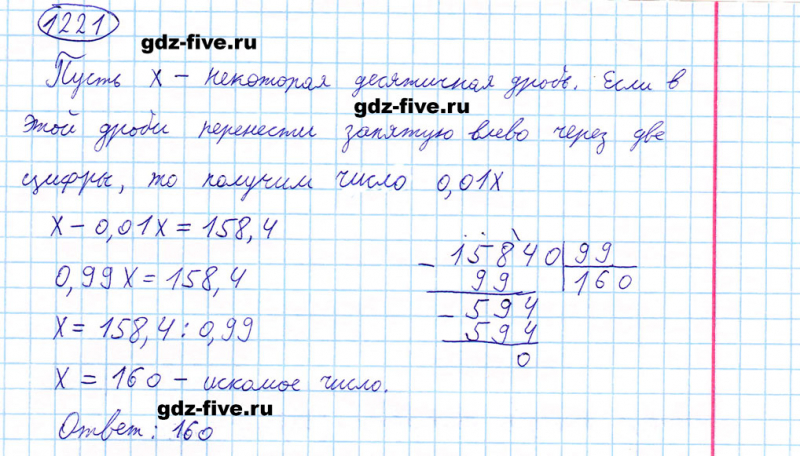 1221
gdz-five.ru
Пусть x – некоторая десятичная дробь. Если в
gdz-five.ru
этой дроби перенести запятую влево через две
цифры, то получим число 0,01x
x – 0,01x = 158,4
0,99x = 158,4
x = 158,4 : 0,99
x = 160 – искомое число.
gdz-five.ru
Ответ: 160
– 15840 | 99
99 | 160
– 594
594
0